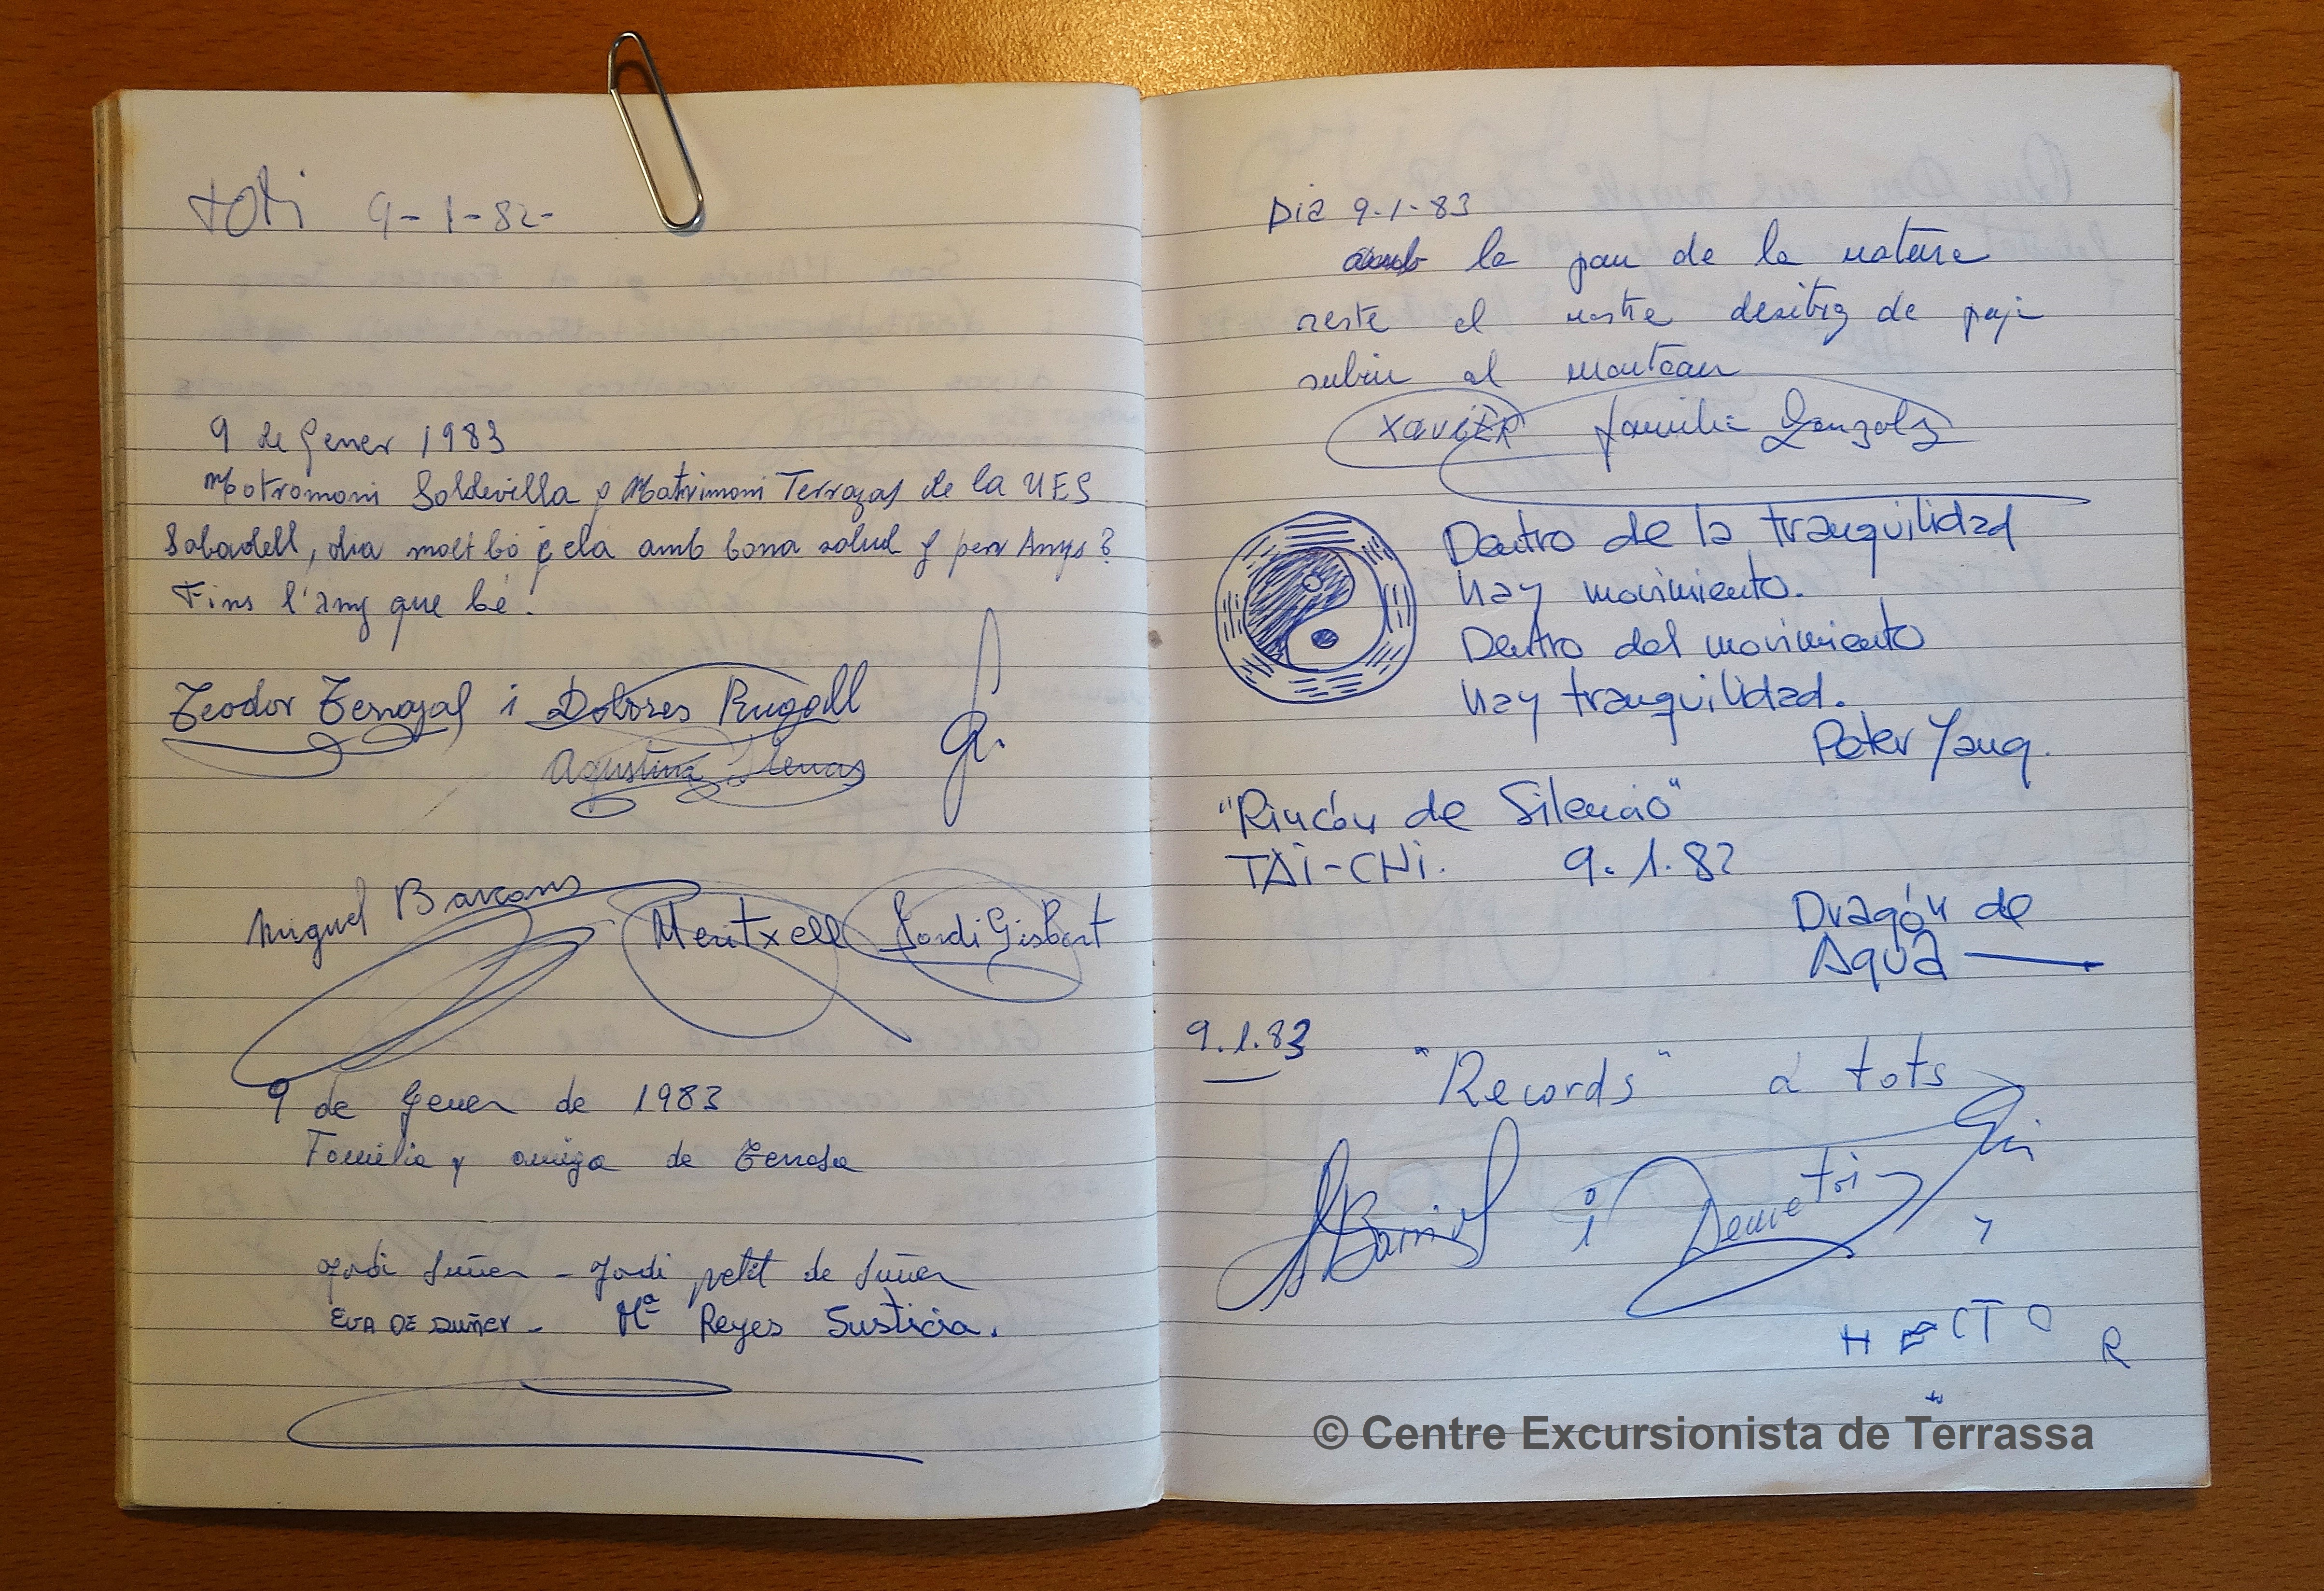 toti 9-1-82-
9 de Gener 1983
Motromoni Soldevilla y Matrimoni Terrazas de la UES
Sabadell, dia molt bó çela amb bona salud y per Anys?
Fins l'any que bé.
Teodor Terrazas i Dolores Rugall
Agustina
Miguel Barcons Meritxell Jordi Gisbert
9 de Gener de 1983
Familia y amiga de Terrasa
Jordi Suñer - Jordi petit de Suñer
EVA DE SUÑER - Mª Reyes Susticia.
Dia 9.1.83
amb la pau de la natura
reste el nostre desitg de
subir al montcau
XAVIER familia Gonzalz
Dentro de la tranquilidad
hay movimiento.
Dentro del movimiento
hay tranquilidad.
Peter Yang.
"Rincón de Silencio"
TAI-CHI. 9.1.82
Dragón de
Agua
9.1.83
"Records" a tots
i Demetri
HECTOR
© Centre Excursionista de Terrassa